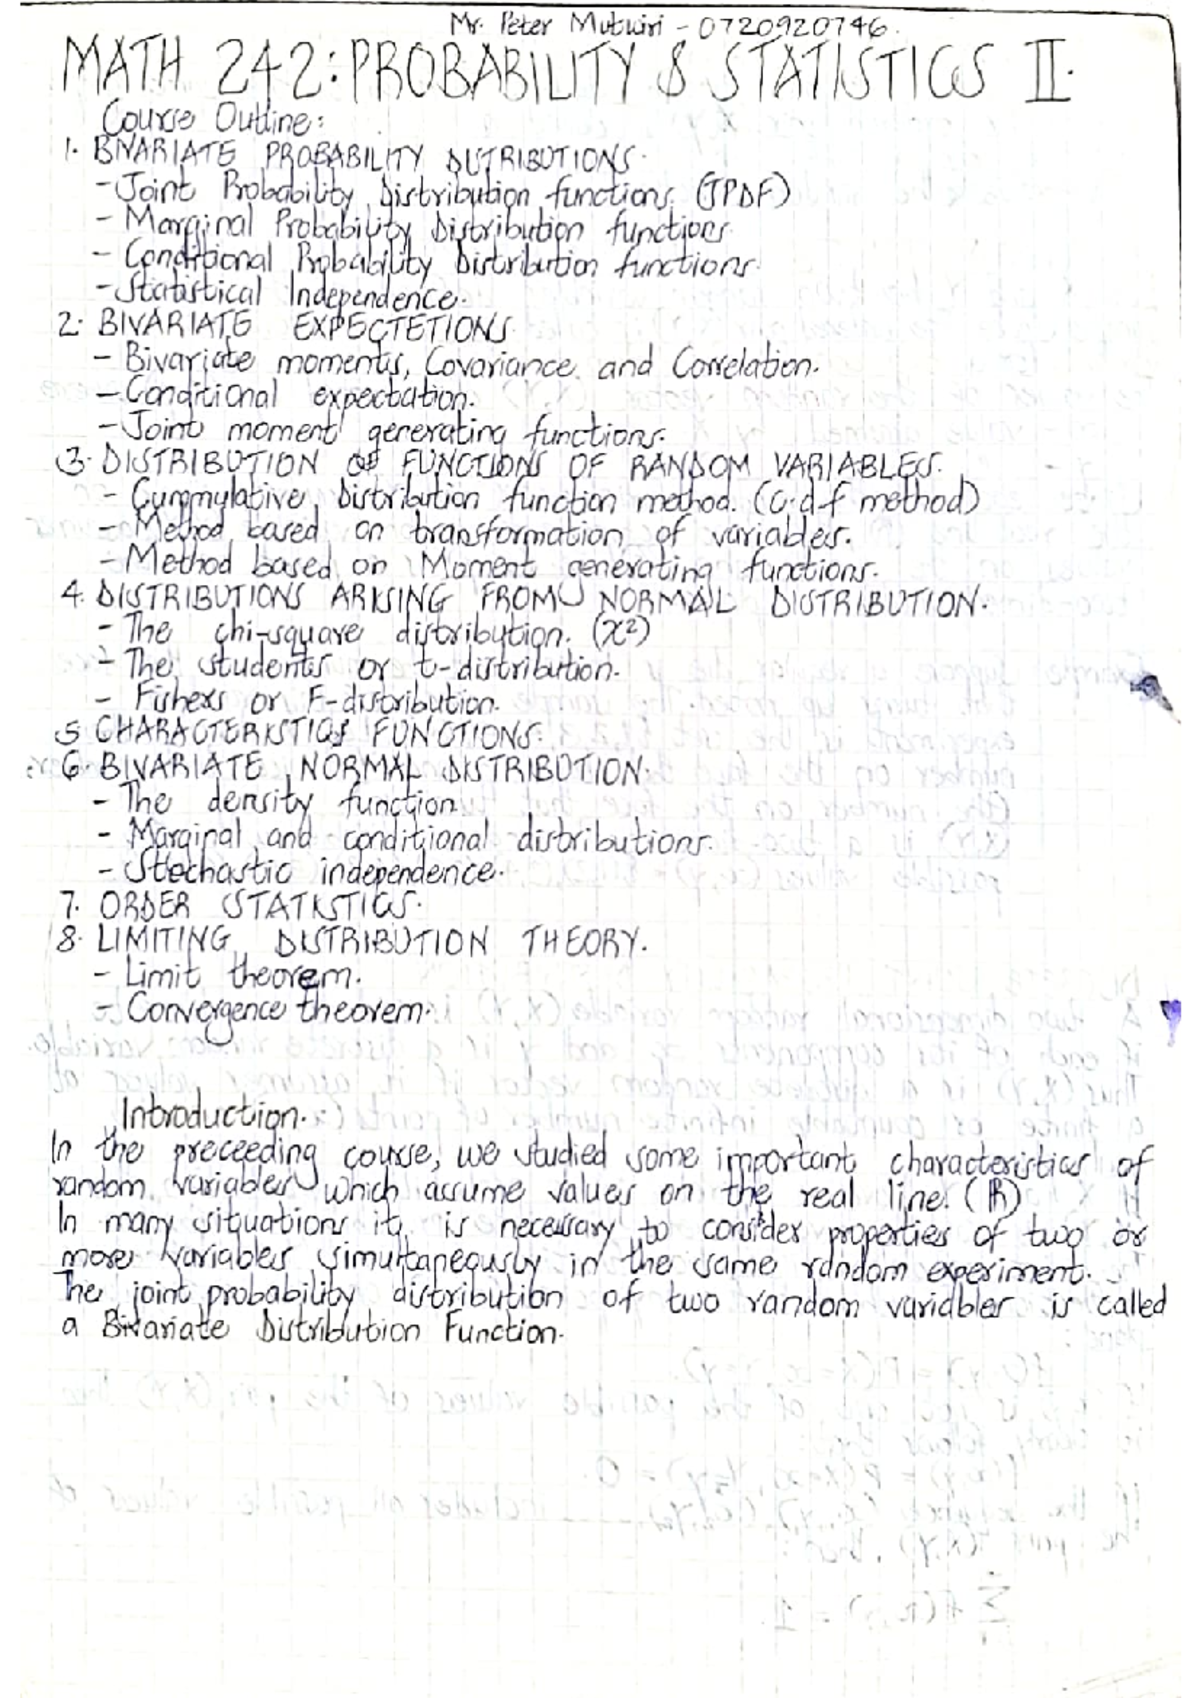 Mr. Peter Mutwiri - 0720920746.
MATH 242: PROBABILITY & STATISTICS II.
Course Outline:
1. BIVARIATE PROBABILITY DISTRIBUTIONS.
- Joint Probability Distribution functions. (JPDF)
- Marginal Probability Distribution functions
- Conditional Probability Distribution functions.
- Statistical Independence.
2. BIVARIATE EXPECTETIONS
- Bivariate moments, Covariance and Correlation.
- Conditional expectation.
- Joint moment generating functions.
3. DISTRIBUTION OF FUNCTIONS OF RANDOM VARIABLES.
- Cummulative distribution function method. (c.d.f method)
- Method based on transformation of variables.
- Method based on Moment generating functions.
4. DISTRIBUTIONS ARISING FROM NORMAL DISTRIBUTION.
- The chi-square distribution. (χ²)
- The students or t-distribution.
- Fishers or F-distribution.
5 CHARACTERISTICS FUNCTIONS.
6 BIVARIATE NORMAL DISTRIBUTION.
- The density function
- Marginal and conditional distributions.
- Stochastic independence.
7. ORDER STATISTICS.
8. LIMITING DISTRIBUTION THEORY.
- Limit theorem.
- Convergence theorem.
Introduction.
In the preceeding course, we studied some important characteristics of
random variables which assume values on the real line. (ℝ)
In many situations it is necessary to consider properties of two or
more variables simultaneously in the same random experiment.
The joint probability distribution of two random variables is called
a Bivariate Distribution Function.